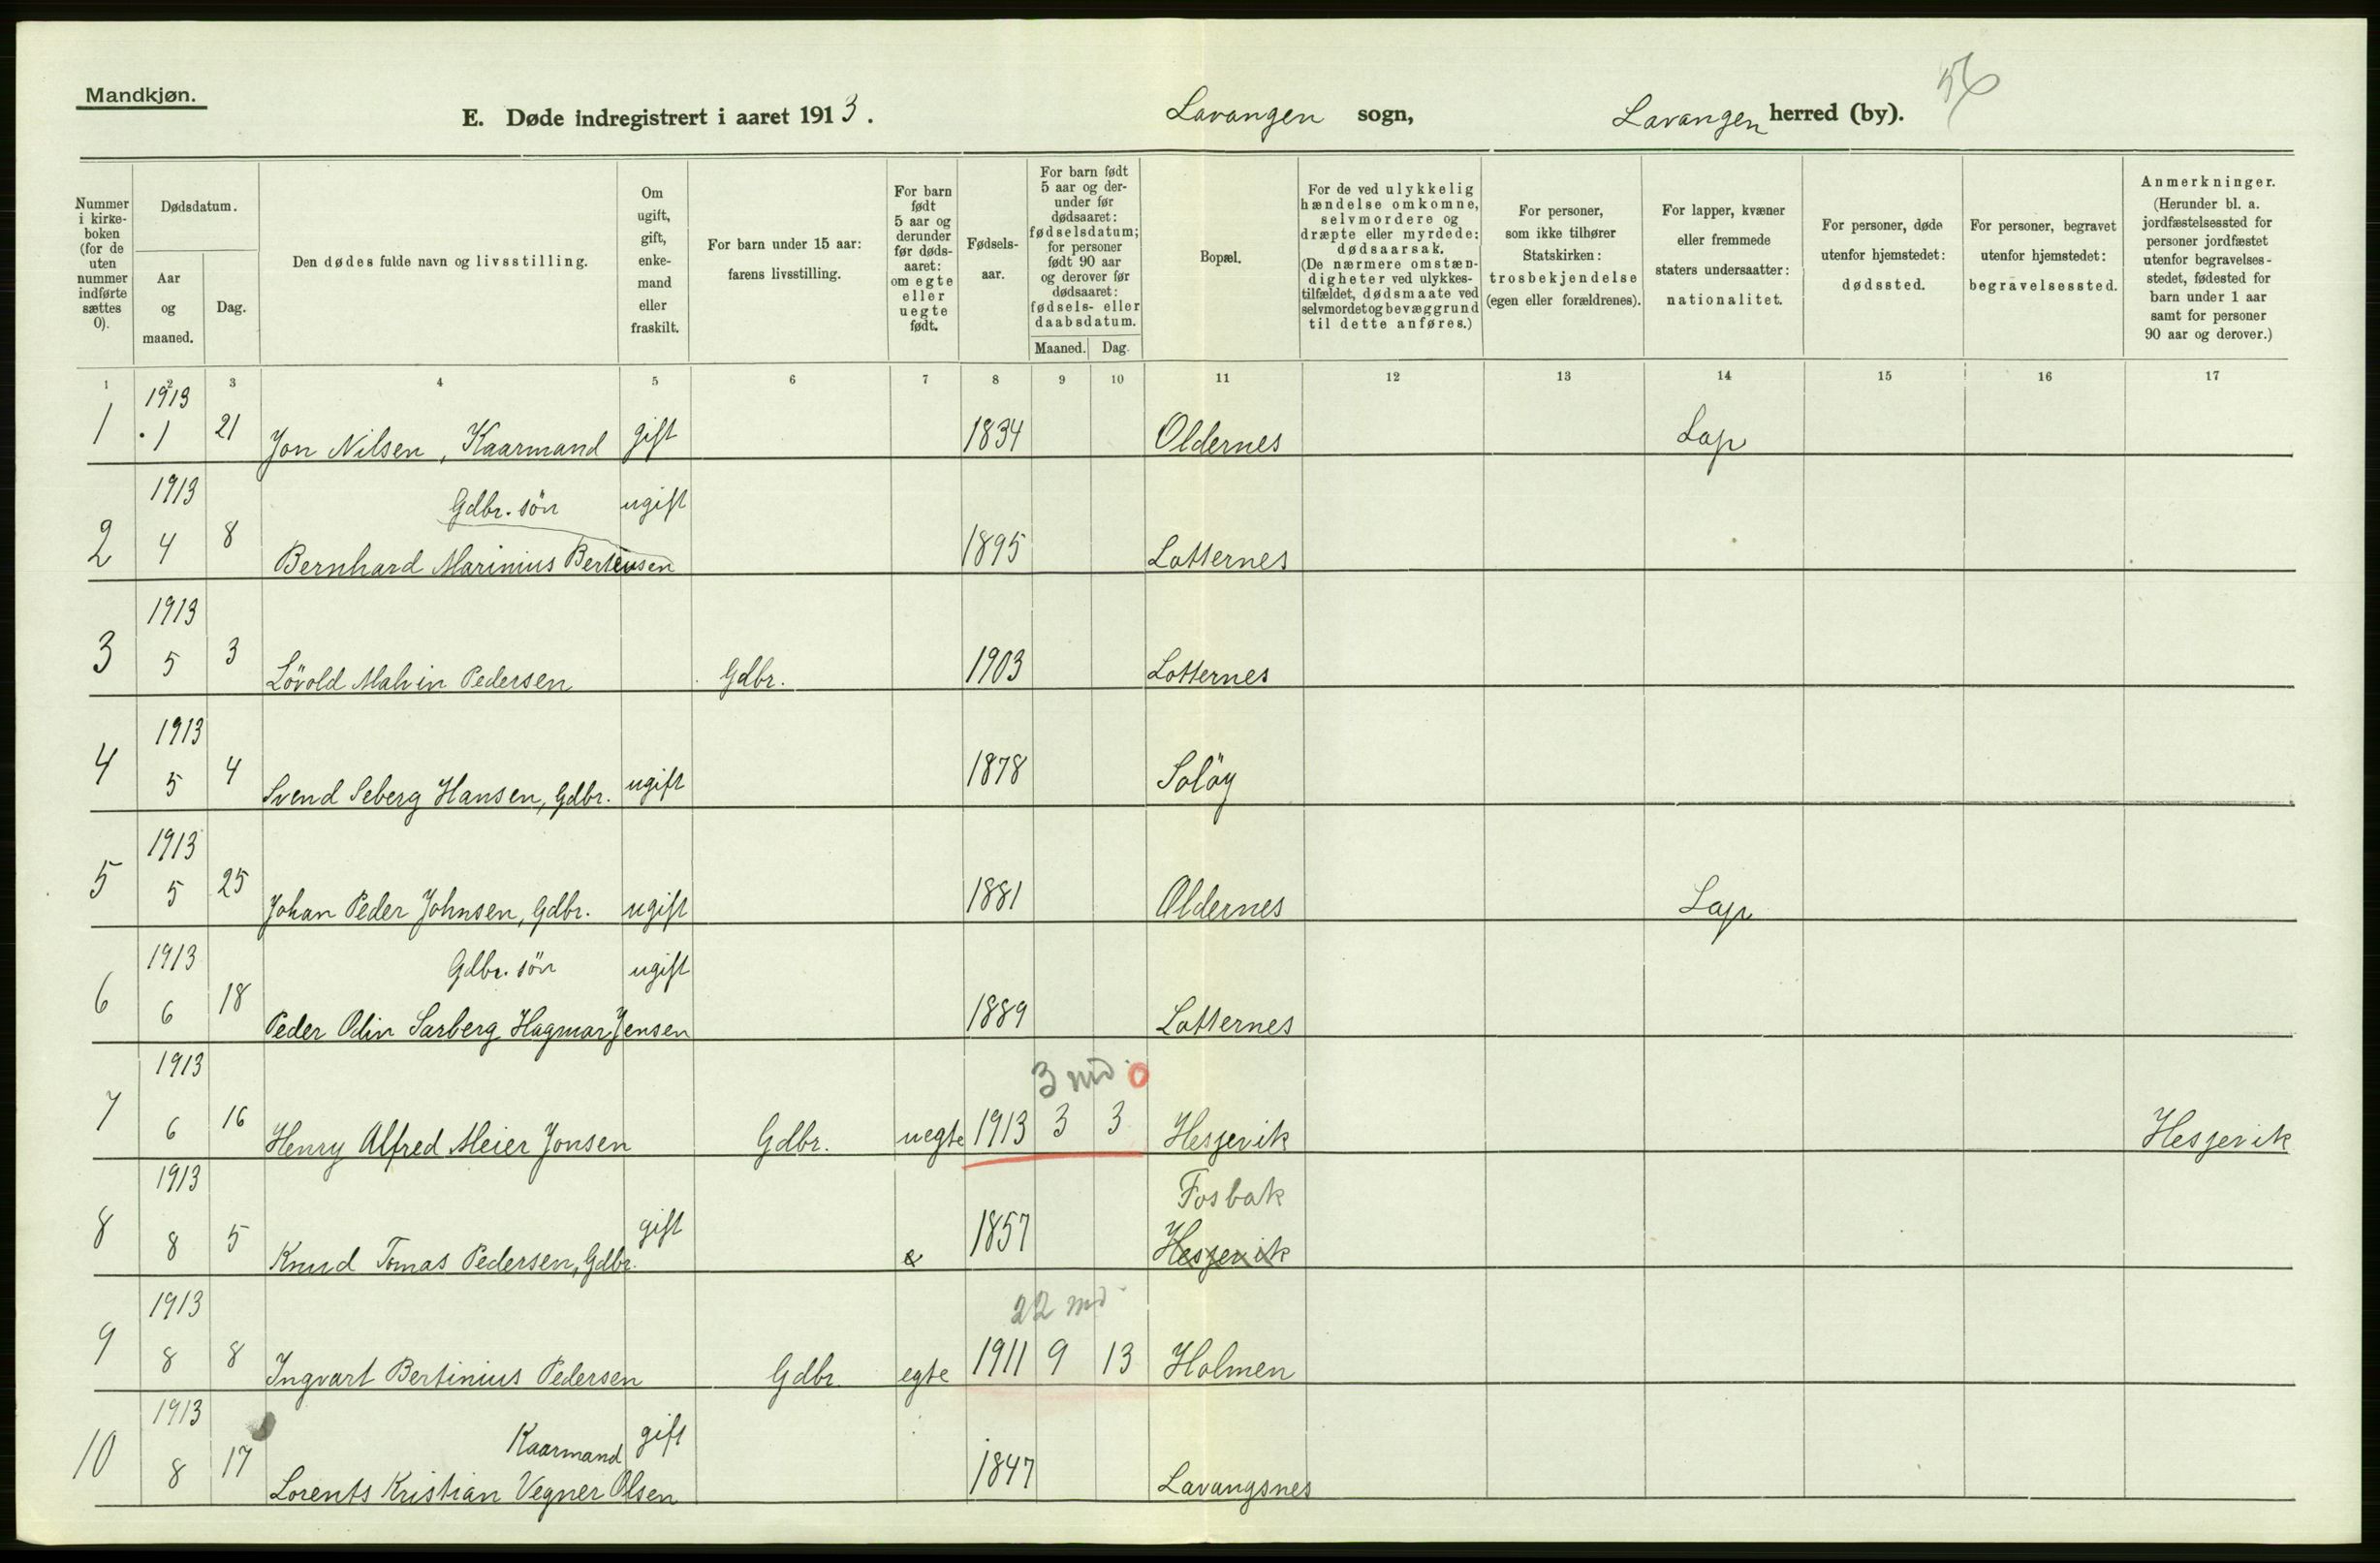 Mandkjøn.
E. Døde indregistrert i aaret 1913. Lavangen sogn, Lavangen herred (by). 56
Nummer i kirke-boken (for de uten nummer indførte sættes 0).
Dødsdatum.
Aar og maaned.
Dag.
Den dødes fulde navn og livsstilling.
Om ugift, gift, enke-mand eller fraskilt.
For barn under 15 aar: farens livsstilling.
For barn født 5 aar og derunder før døds-aaret: om egte eller uegte født.
Fødsels-aar.
For barn født 5 aar og der-under før dødsaaret: fødselsdatum; for personer født 90 aar og derover før dødsaaret: fødsels- eller daabsdatum.
Maaned. Dag.
Bopæl.
For de ved ulykkelig hændelse omkomne, selvmordere og dræpte eller myrdede: dødsaarsak. (De nærmere omstæn-digheter ved ulykkes-tilfældet, dødsmaate ved selvmordet og bevæggrund til dette anføres.)
For personer, som ikke tilhører Statskirken: trosbekjendelse (egen eller forældrenes).
For lapper, kvæner eller fremmede staters undersaatter: nationalitet.
For personer, døde utenfor hjemstedet: dødssted.
For personer, begravet utenfor hjemstedet: begravelsessted.
Anmerkninger. (Herunder bl. a. jordfæstelsessted for personer jordfæstet utenfor begravelses-stedet, fødested for barn under 1 aar samt for personer 90 aar og derover.)
1 2 3 4 5 6 7 8 9 10 11 12 13 14 15 16 17
1913
1 1 21 Jon Nilsen, Kaarmand gift 1834 Oldernes Lap
1913 Gdbr. sön ugift
2 4 8 Bernhard Marinius Berteusen 1895 Lotternes
1913
3 5 3 Lövold Malvin Pedersen Gdbr. 1903 Lotternes
1913
4 5 4 Svend Seberg Hansen, Gdbr. ugift 1878 Solöy
1913
5 5 25 Johan Peder Johnsen, Gdbr. ugift 1881 Oldernes Lap
1913 Gdbr. sön ugift
6 6 18 Peder Odin Sarberg Hagmar Jensen 1889 Lotternes
1913 3 md. 0
7 6 16 Henry Alfred Meier Jonsen Gdbr. uegte 1913 3 3 Hesjevik Hesjevik
1913 Fosbak
8 8 5 Knud Tomas Pedersen, Gdbr. gift 1857 Hesjevik
1913 22 md
9 8 8 Ingvart Bertinius Pedersen Gdbr. egte 1911 9 13 Holmen
1913 Kaarmand gift
10 8 17 Lorents Kristian Vegner Olsen 1847 Lavangsnes